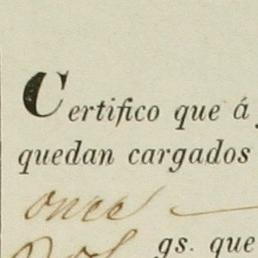 Certifico que á
quedan cargados
once
gs. que